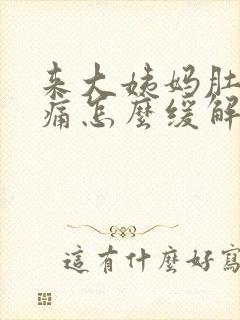 来大姨妈肚
痛怎麼缓解
這有什麼好寫